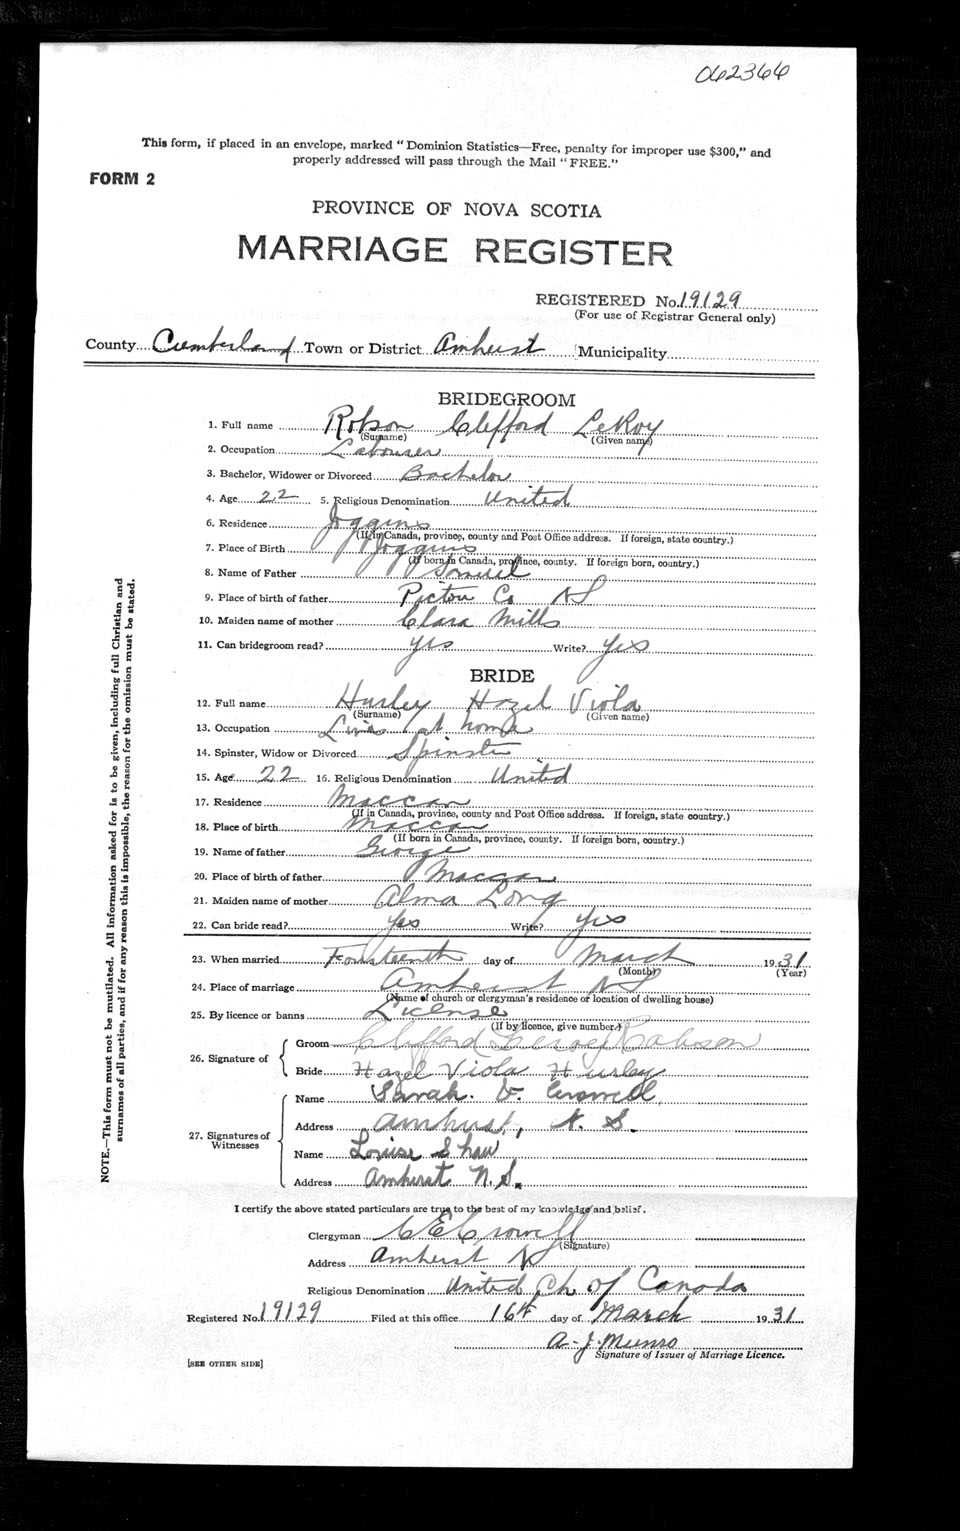 062366
This form, if placed in an envelope, marked "Dominion Statistics—Free, penalty for improper use $300," and
properly addressed will pass through the Mail "FREE."
FORM 2
PROVINCE OF NOVA SCOTIA
MARRIAGE REGISTER
REGISTERED No. 19129
(For use of Registrar General only)
County Cumberland Town or District Amherst Municipality
BRIDEGROOM
1. Full name Robson Clifford LeRoy
(Surname) (Given name)
2. Occupation Labourer
3. Bachelor, Widower or Divorced Bachelor
4. Age 22 5. Religious Denomination United
6. Residence Joggins
(If in Canada, province, county and Post Office address. If foreign, state country.)
7. Place of Birth Joggins
(If born in Canada, province, county. If foreign born, country.)
8. Name of Father Samuel
9. Place of birth of father Pictou Co NS
10. Maiden name of mother Clara Mills
11. Can bridegroom read? yes Write? yes
BRIDE
12. Full name Hurley Hazel Viola
(Surname) (Given name)
13. Occupation Lives at home
14. Spinster, Widow or Divorced Spinster
15. Age 22 16. Religious Denomination United
17. Residence Maccan
(If in Canada, province, county and Post Office address. If foreign, state country.)
18. Place of birth Maccan
(If born in Canada, province, county. If foreign born, country.)
19. Name of father George
20. Place of birth of father Maccan
21. Maiden name of mother Alma Long
22. Can bride read? yes Write? yes
23. When married Fourteenth day of March 1931
(Month) (Year)
24. Place of marriage Amherst NS
(Name of church or clergyman's residence or location of dwelling house)
25. By licence or banns License
(If by licence, give number.)
26. Signature of
Groom Clifford Leroy Robson
Bride Hazel Viola Hurley
27. Signatures of Witnesses
Name Sarah. V. Crowell
Address Amherst, N. S.
Name Louise Shaw
Address Amherst N.S.
I certify the above stated particulars are true to the best of my knowledge and belief.
Clergyman C E Crowell
(Signature)
Address Amherst NS
Religious Denomination United Ch of Canada
Registered No. 19129 Filed at this office 16th day of March 1931
A. J. Munro
Signature of Issuer of Marriage Licence.
[SEE OTHER SIDE]
NOTE.—This form must not be mutilated. All information asked for is to be given, including full Christian and
surnames of all parties, and if for any reason this is impossible, the reason for the omission must be stated.